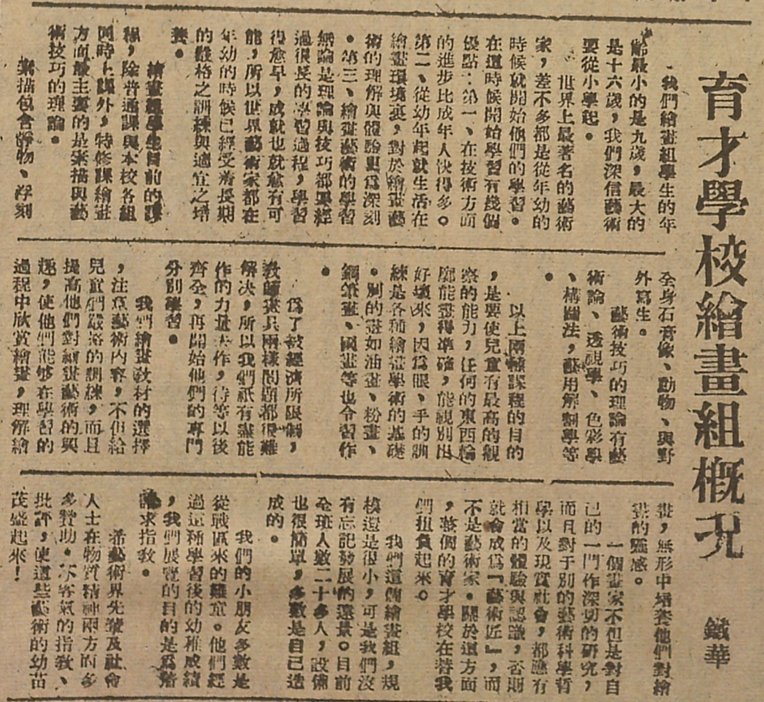 育才學校繪畫組概况
鐵華
我們繪畫組學生的年
齡最小的是九歲，最大的
是十六歲，我們深信藝術
要從小學起。
世界上最著名的藝術
家，差不多都是從年幼的
時候就開始他們的學習。
在這時候開始學習有幾個
優點：第一、在技術方面
的進步比成年人快得多。
第二、從幼年起就生活在
繪畫環境裏，對於繪畫藝
術的理解與體驗更爲深刻
。第三、繪畫藝術的學習
無論是理論與技巧都要經
過很長的學習過程，學習
得愈早，成就也就愈有可
能，所以世界藝術家都在
年幼的時候已經受着長期
的嚴格之訓練與適宜之培
養。
繪畫組學生目前的課
程，除普通課與本校各組
同時上課外，特修課繪畫
方面最主要的是素描與藝
術技巧的理論。
素描包含靜物、浮刻
全身石膏像、動物、與野
外寫生。
藝術技巧的理論有藝
術論、透視學、色彩學
、構圖法，藝用解剖學等
。
以上兩種課程的目的
，是要使兒童有最高的觀
察的能力，任何的東西輪
廓能畫得準確，能視別出
好壞來，因爲眼、手的訓
練是各種繪畫學術的基礎
。別的畫如油畫、粉畫、
鋼筆畫、國畫等也令習作
。
爲了被經濟所限制，
教師畫具兩樣問題都很難
解决，所以我們祇有盡能
作的力量去作，待等以後
齊全，再開始他們的專門
分別學習。
我們繪畫教材的選擇
，注意藝術內容，不但給
兒童們嚴格的訓練，而且
提高他們對繪畫藝術的興
趣，使他們能够在學習的
過程中欣賞繪畫，理解繪
畫，無形中培養他們對繪
畫的靈感。
一個畫家不但是對自
己的一門作深切的研究，
而且對于別的藝術科學哲
學以及現實社會，都應有
相當的體驗與認識，否則
就會成爲『藝術匠』，而
不是藝術家。關於這方面
，整個的育才學校在替我
們担負起來。
我們這個繪畫組，規
模還是很小，可是我們沒
有忘記發展的遠景。目前
全班人數二十多人，設備
也很簡單，多數是自己造
成的。
我們的小朋友多數是
從戰區來的難童。他們經
過這種學習後的幼稚成績
，我們展覽的目的是爲着
請求指教。
希藝術界先輩及社會
人士在物質精神兩方面多
多贊助。不客氣的指教、
批評，使這些藝術的幼苗
茂盛起來！